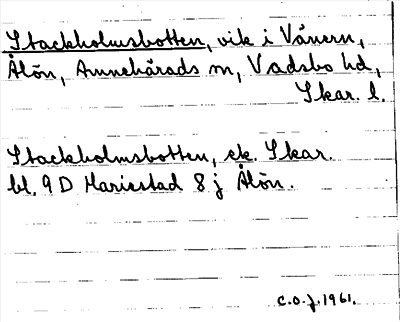 Stackholmsbotten, vik i Vänern,
Ålön, Annehärads sn, Vadsbo hd,
Skar. l.
Stackholmsbotten, ek. Skar.
bl. 9 D Mariestad 8 j Ålön.
C.O.J. 1961.